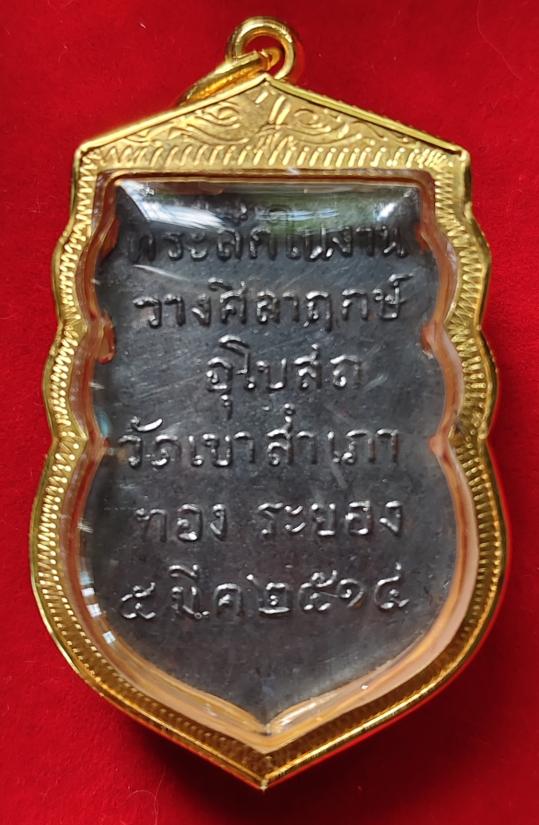 ที่ระลึกในงาน
วางศิลาฤกษ์
อุโบสถ
วัดเขาสำเภา
ทอง ระยอง
๕ มี.ค ๒๕๑๔